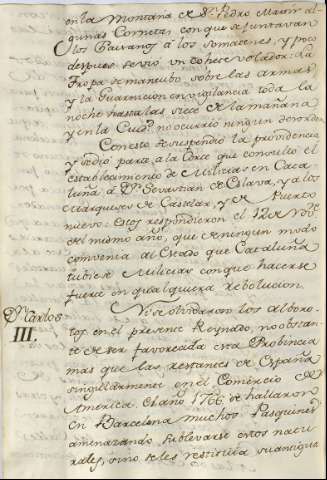 en la Montaña de Sn. Pedro Martir al-
gunas Cornetas con que se juntavan
los Paysanos à los somatenes, y poco
despues se vió un cohete volador: La
Tropa se mantubo sobre las armas
y la Guarnicion en vigilancia toda la
noche hasta las siete de la mañana
y en la Ciudd. no ocurrió ningun desorden
Con esto se suspendió la providencia
y se dió parte à la Corte que consultó el
establecimiento de Milicias en Cata-
luña à Dn. Sevastian de Eslava, y a los
Marqueses de Castelar, y de Puerto
nuevo: Estos respondieron el 12 de
del mismo año, que de ningun modo
convenia al Estado que Cataluña
tubiese Milicias con que hacerse
fuerte en qualquiera rebolucion.
Dn. Carlos
III.
Ni se olvidaron los alboro-
tos en el presente Reynado, no obstan-
te de ser favorecida esta Probincia
mas que las restantes de España
singularmente en el Comercio de
America. El año 1766 se hallaron
en Barcelona muchos Pasquines
amenazando sublevarse estos natu-
rales, sino se les restituia su antigua